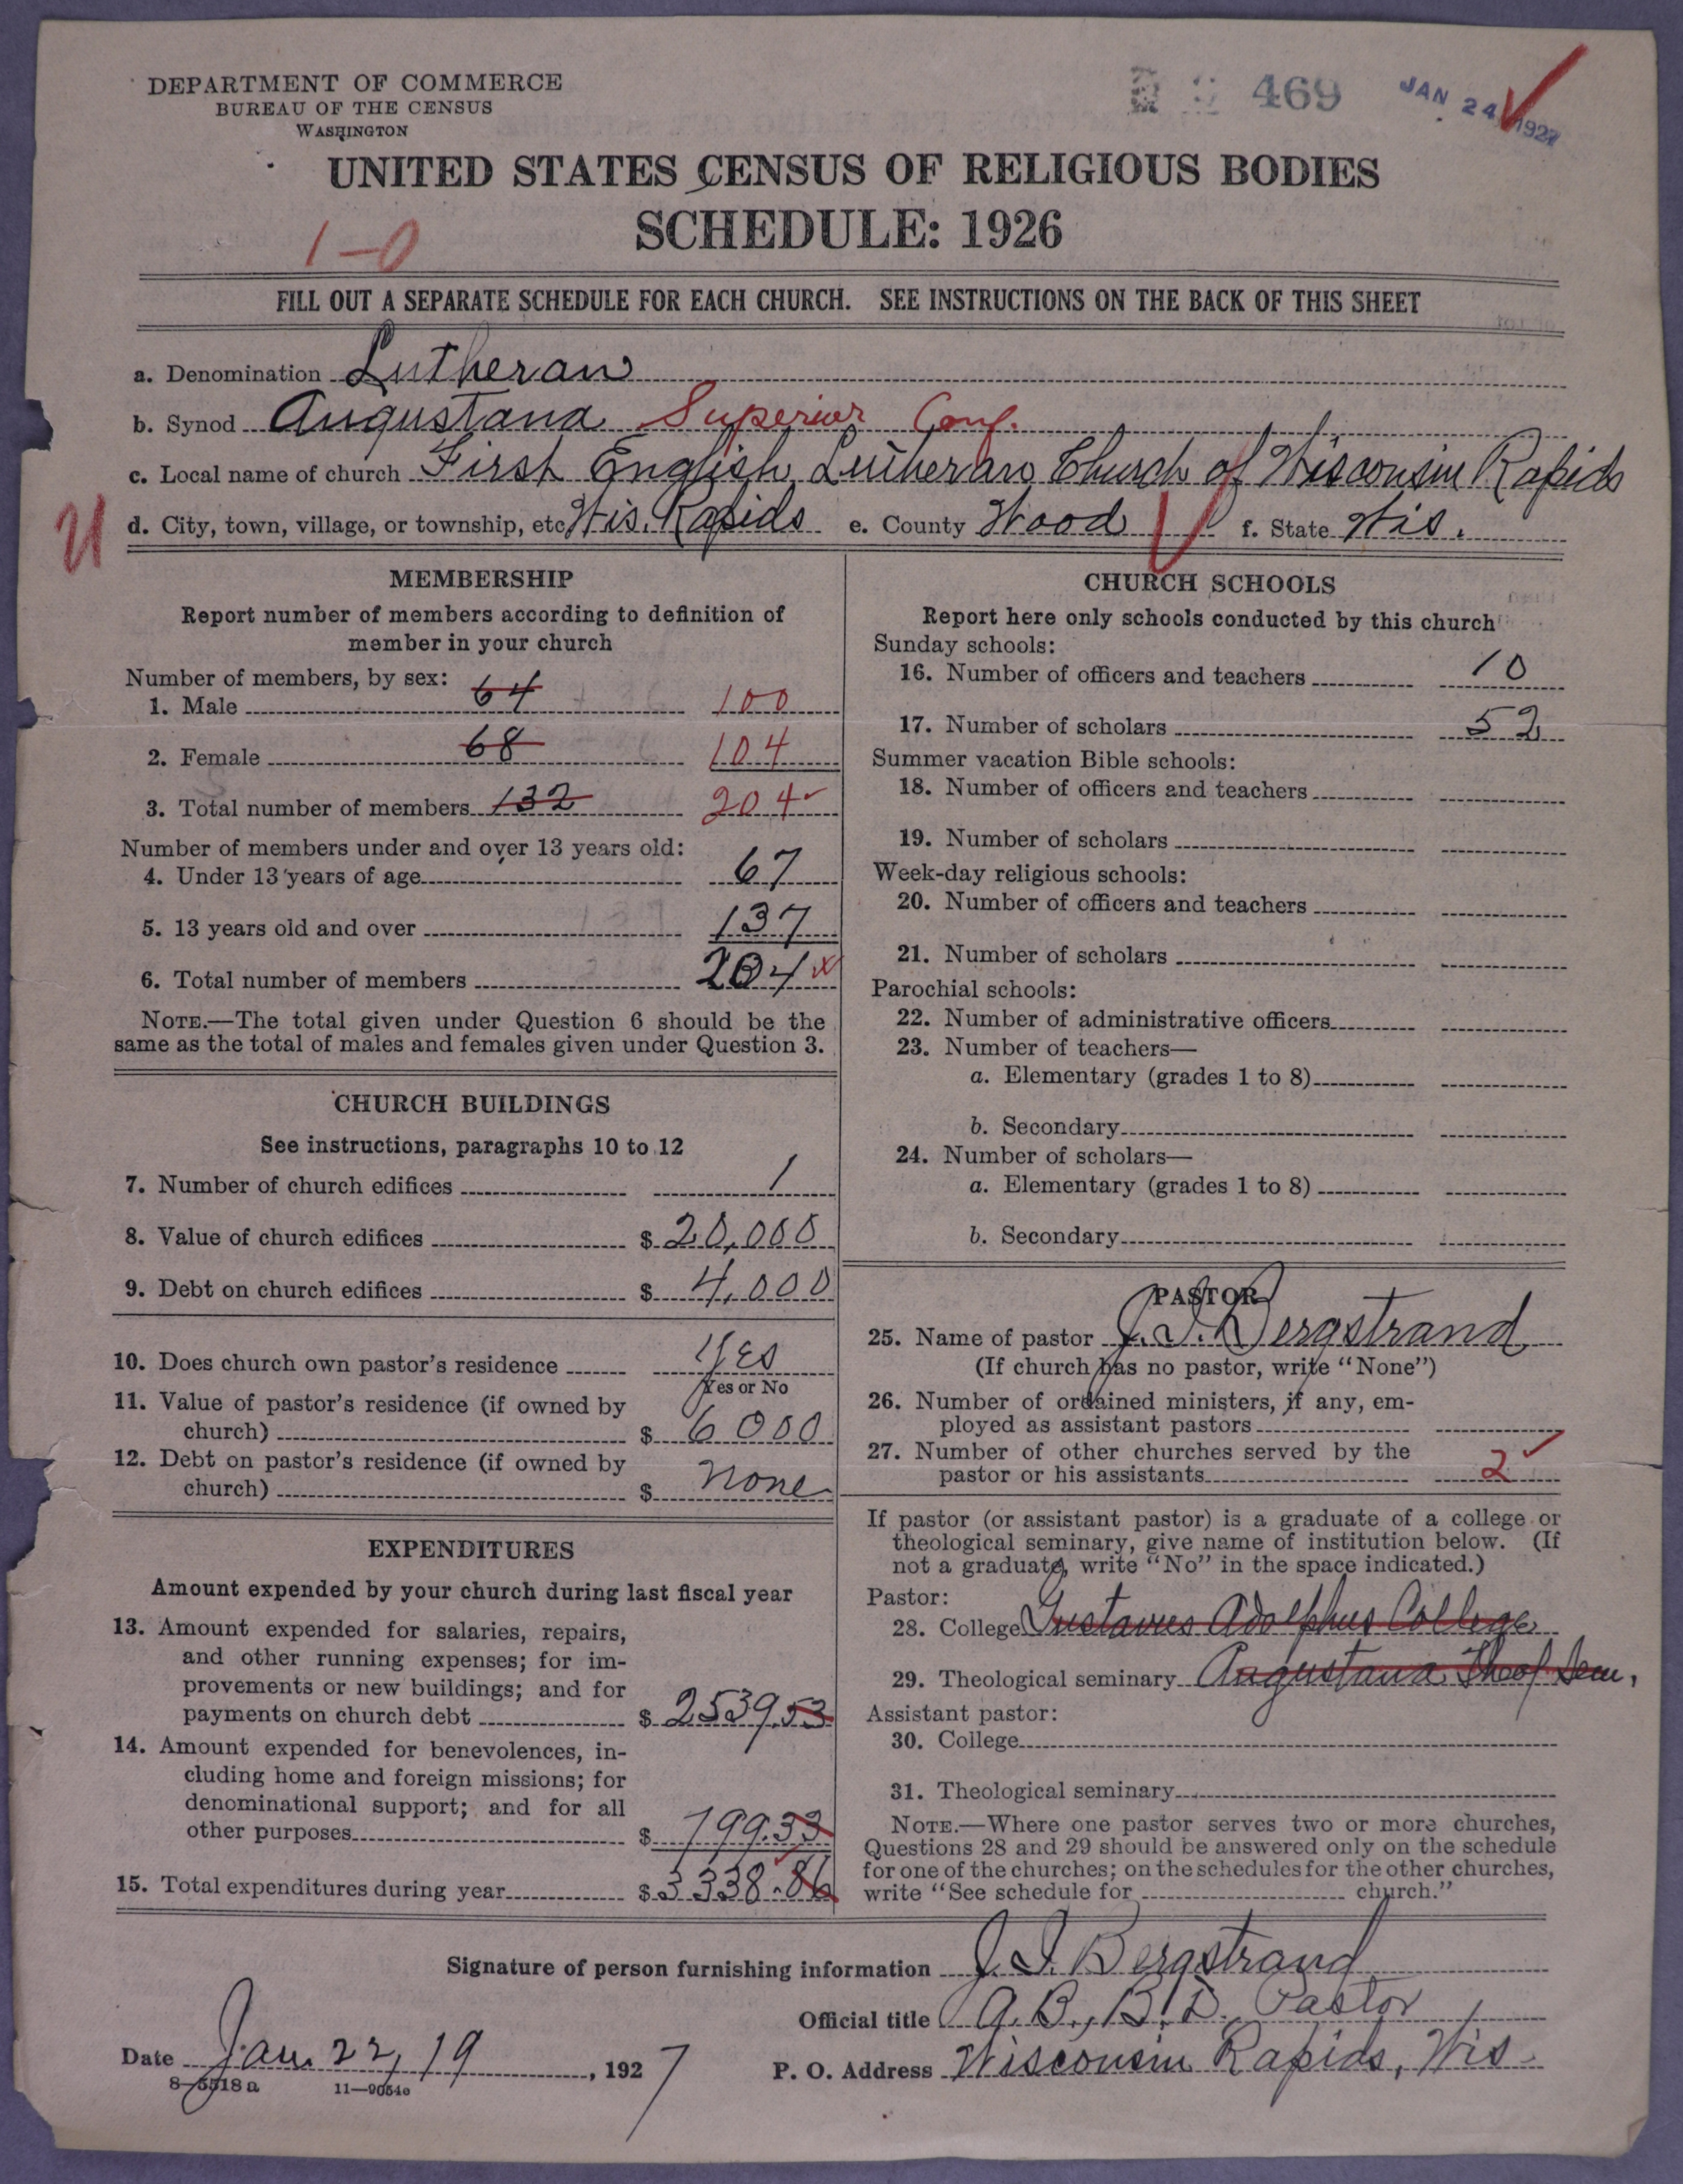 DEPARTMENT OF COMMERCE
BUREAU OF THE CENSUS
WASHINGTON
469
JAN 24 1927
UNITED STATES CENSUS OF RELIGIOUS BODIES
SCHEDULE: 1926
1-0
FILL OUT A SEPARATE SCHEDULE FOR EACH CHURCH. SEE INSTRUCTIONS ON THE BACK OF THIS SHEET
a. Denomination Lutheran
b. Synod Augustana Superior Conf.
c. Local name of church First English Lutheran Church of Wisconsin Rapids
d. City, town, village, or township, etc Wis. Rapids e. County Wood f. State Wis.
MEMBERSHIP
Report number of members according to definition of
member in your church
Number of members, by sex:
1. Male 64 100
2. Female 68 104
3. Total number of members 132 204
Number of members under and over 13 years old:
4. Under 13 years of age 67
5. 13 years old and over 137
6. Total number of members 204
NOTE.—The total given under Question 6 should be the
same as the total of males and females given under Question 3.
CHURCH BUILDINGS
See instructions, paragraphs 10 to 12
7. Number of church edifices 1
8. Value of church edifices $ 20,000
9. Debt on church edifices $ 4,000
10. Does church own pastor's residence Yes
Yes or No
11. Value of pastor's residence (if owned by
church) $ 6000
12. Debt on pastor's residence (if owned by
church) $ none
EXPENDITURES
Amount expended by your church during last fiscal year
13. Amount expended for salaries, repairs,
and other running expenses; for im-
provements or new buildings; and for
payments on church debt $ 2539.53
14. Amount expended for benevolences, in-
cluding home and foreign missions; for
denominational support; and for all
other purposes $ 799.33
15. Total expenditures during year $ 3338.86
CHURCH SCHOOLS
Report here only schools conducted by this church
Sunday schools:
16. Number of officers and teachers 10
17. Number of scholars 52
Summer vacation Bible schools:
18. Number of officers and teachers
19. Number of scholars
Week-day religious schools:
20. Number of officers and teachers
21. Number of scholars
Parochial schools:
22. Number of administrative officers
23. Number of teachers—
a. Elementary (grades 1 to 8)
b. Secondary
24. Number of scholars—
a. Elementary (grades 1 to 8)
b. Secondary
PASTOR
25. Name of pastor J. I. Bergstrand
(If church has no pastor, write "None")
26. Number of ordained ministers, if any, em-
ployed as assistant pastors
27. Number of other churches served by the
pastor or his assistants 2
If pastor (or assistant pastor) is a graduate of a college or
theological seminary, give name of institution below. (If
not a graduate, write "No" in the space indicated.)
Pastor:
28. College Gustavus Adolphus College
29. Theological seminary Augustana Theol Sem,
Assistant pastor:
30. College
31. Theological seminary
NOTE.—Where one pastor serves two or more churches,
Questions 28 and 29 should be answered only on the schedule
for one of the churches; on the schedules for the other churches,
write "See schedule for church."
Signature of person furnishing information J. I. Bergstrand
Official title A. B., B. D., Pastor
Date Jan. 22, 19, 1927
P. O. Address Wisconsin Rapids, Wis.
8-5518 a 11-9054c